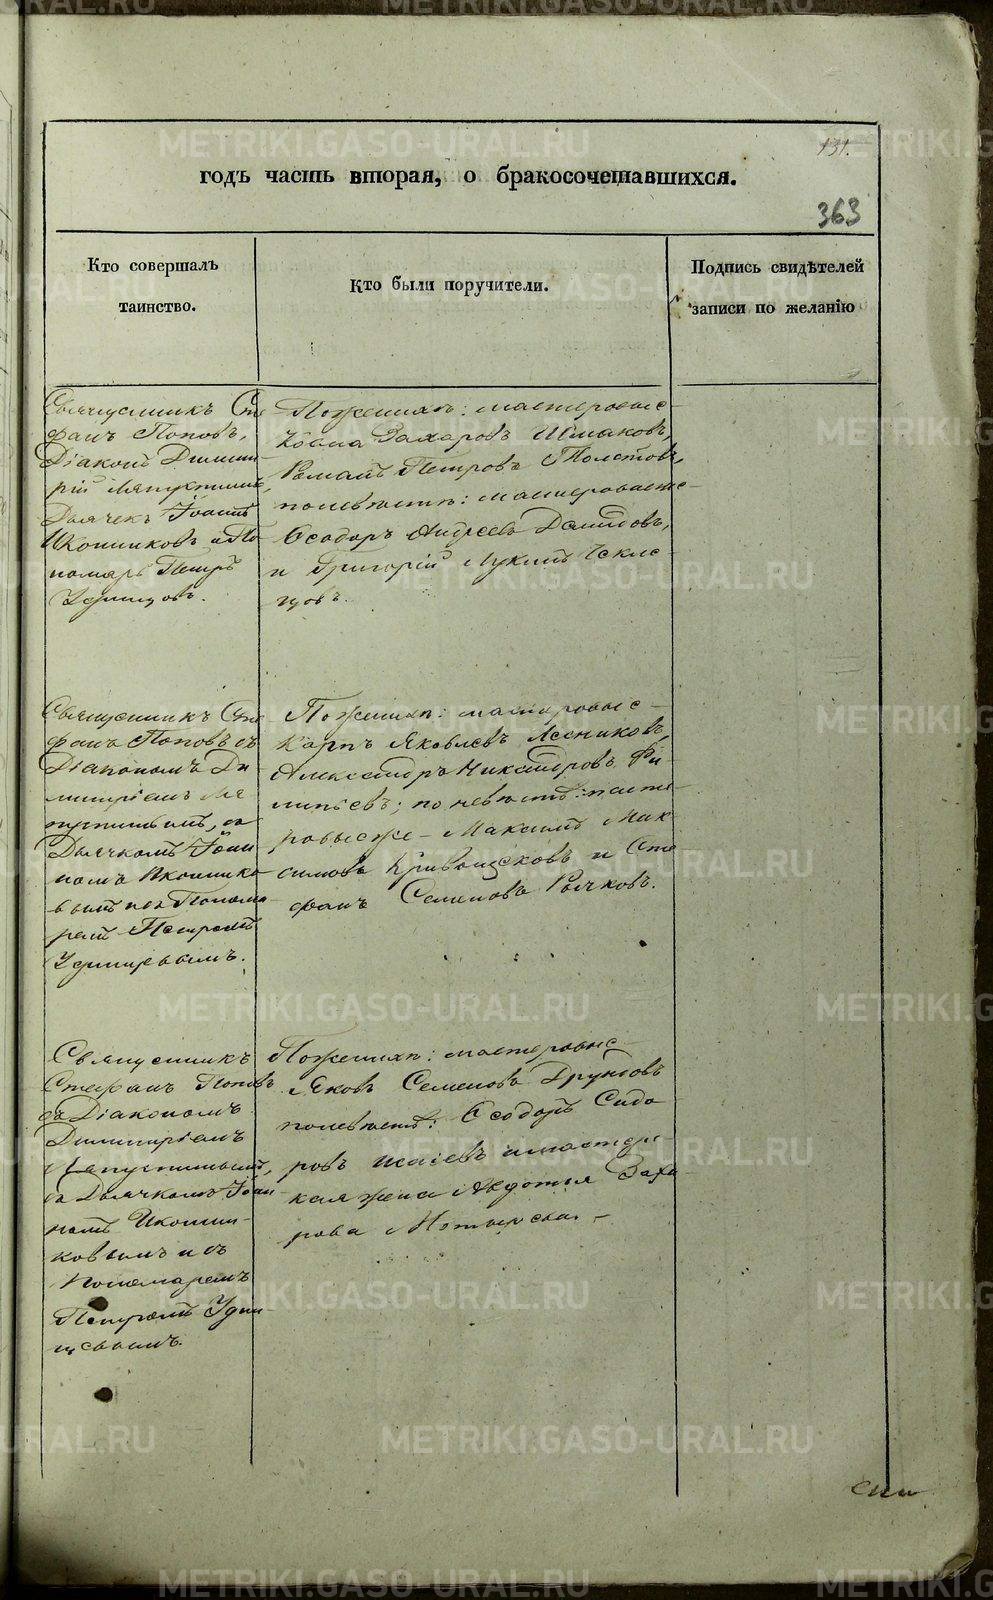 131.
годъ часть вторая, о бракосочетавшихся.
363
Кто совершалъ
таинство.
Кто были поручители.
Подпись свидѣтелей
записи по желанію
Священникъ Сте
фанъ Поповъ,
Діаконъ Димит
рій Ляпустинъ,
Дьячекъ Іоаннъ
Иконниковъ и По
номарь Петръ
Удинцовъ.
По женихѣ: мастеровые
Козма Захаровъ
Романъ Петровъ Толстовъ,
по невѣстѣ: мастеровые же
Ѳеодоръ Андреевъ Даниловъ,
и Григорій Лукинъ
цовъ.
Священникъ Сте
фанъ Поповъ съ
Діакономъ Ди
митріемъ Ля
пустинымъ, съ
Дьячкомъ Іоан
номъ Иконнико
вымъ и съ Понома
ремъ Петромъ
Удинцевымъ.
По женихѣ: мастеровые
Карпъ Яковлевъ Лесниковъ,
Александръ Никандровъ Фи
липьевъ; по невѣстѣ: масте
ровые же Максимъ Мак
симовъ Кривощековъ и Сте
фанъ Семеновъ Рычковъ.
Священникъ
Стефанъ Поповъ
съ Діакономъ
Димитріемъ
Ляпустинымъ,
съ Дьячкомъ Іоан
номъ Иконни
ковымъ и съ
Пономаремъ
Петромъ Удин
цевымъ.
По женихѣ: мастеровые
Яковъ Семеновъ
по невѣстѣ: Ѳеодоръ Сидо
ровъ Исаевъ и мастерс
кая жена Авдотья Заха
рова
METRIKI.GASO-URAL.RU